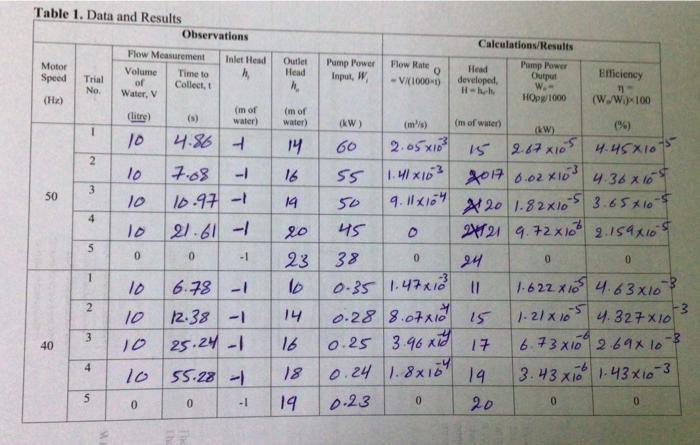 Table 1. Data and Results
Observations Calculations/Results
Motor Speed (Hz) Trial No. Flow Measurement Inlet Head hᵢ (m of water) Outlet Head hₒ (m of water) Pump Power Input, Wᵢ (kW) Flow Rate Q = V/(1000×t) (m³/s) Head developed, H = hₒ-hᵢ (m of water) Pump Power Output Wₒ = HQρg/1000 (kW) Efficiency η = (Wₒ/Wᵢ)×100 (%)
Volume of Water, V (litre) Time to Collect, t (s)
50
1 10 4.86 -1 14 60 2.05x10³ 15 2.67x10⁻⁵ 4.45x10⁻⁵
2 10 7.08 -1 16 55 1.41x10⁻³ 17 6.02x10⁻³ 4.36x10⁻⁵
3 10 10.97 -1 19 50 9.11x10⁻⁴ 20 1.82x10⁻⁵ 3.65x10⁻⁵
4 10 21.61 -1 20 45 0 21 9.72x10⁻⁶ 2.159x10⁻⁵
5 0 0 -1 23 38 0 24 0 0
40
1 10 6.78 -1 10 0.35 1.47x10⁻³ 11 1.622x10⁻⁵ 4.63x10⁻³
2 10 12.38 -1 14 0.28 8.07x10⁻⁴ 15 1.21x10⁻⁵ 4.327x10⁻³
3 10 25.24 -1 16 0.25 3.96x10⁻⁴ 17 6.73x10⁻⁶ 2.69x10⁻³
4 10 55.28 -1 18 0.24 1.8x10⁻⁴ 19 3.43x10⁻⁶ 1.43x10⁻³
5 0 0 -1 19 0.23 0 20 0 0